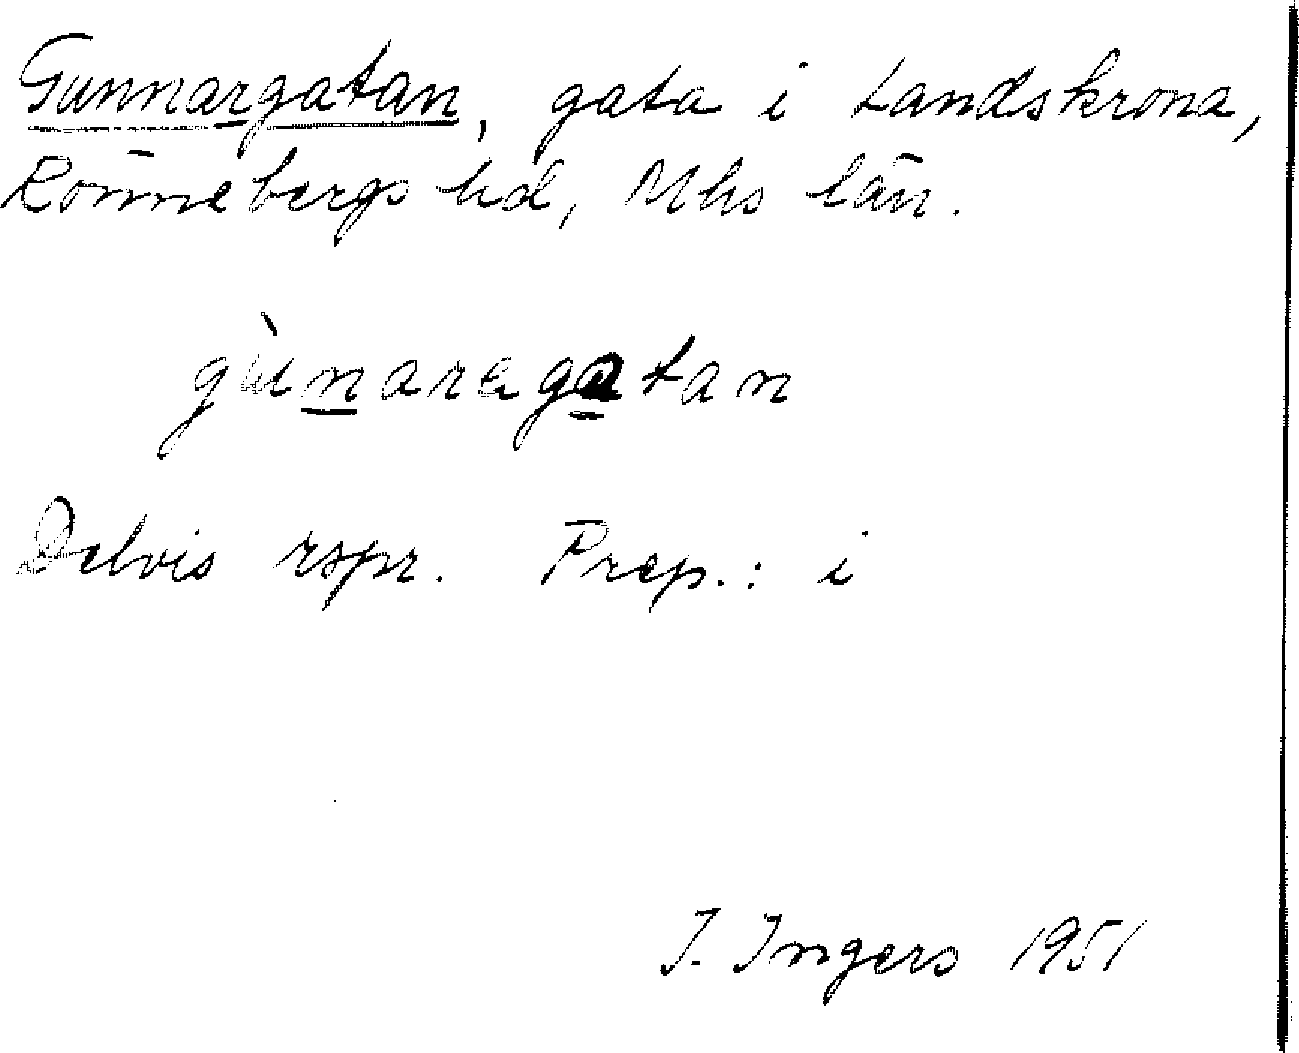 Gunnargatan, gata i Landskrona,
Rönnebergs hd, Mhs län.
gùnaragatan
Delvis rspr. Prep.: i
I. Ingers 1951